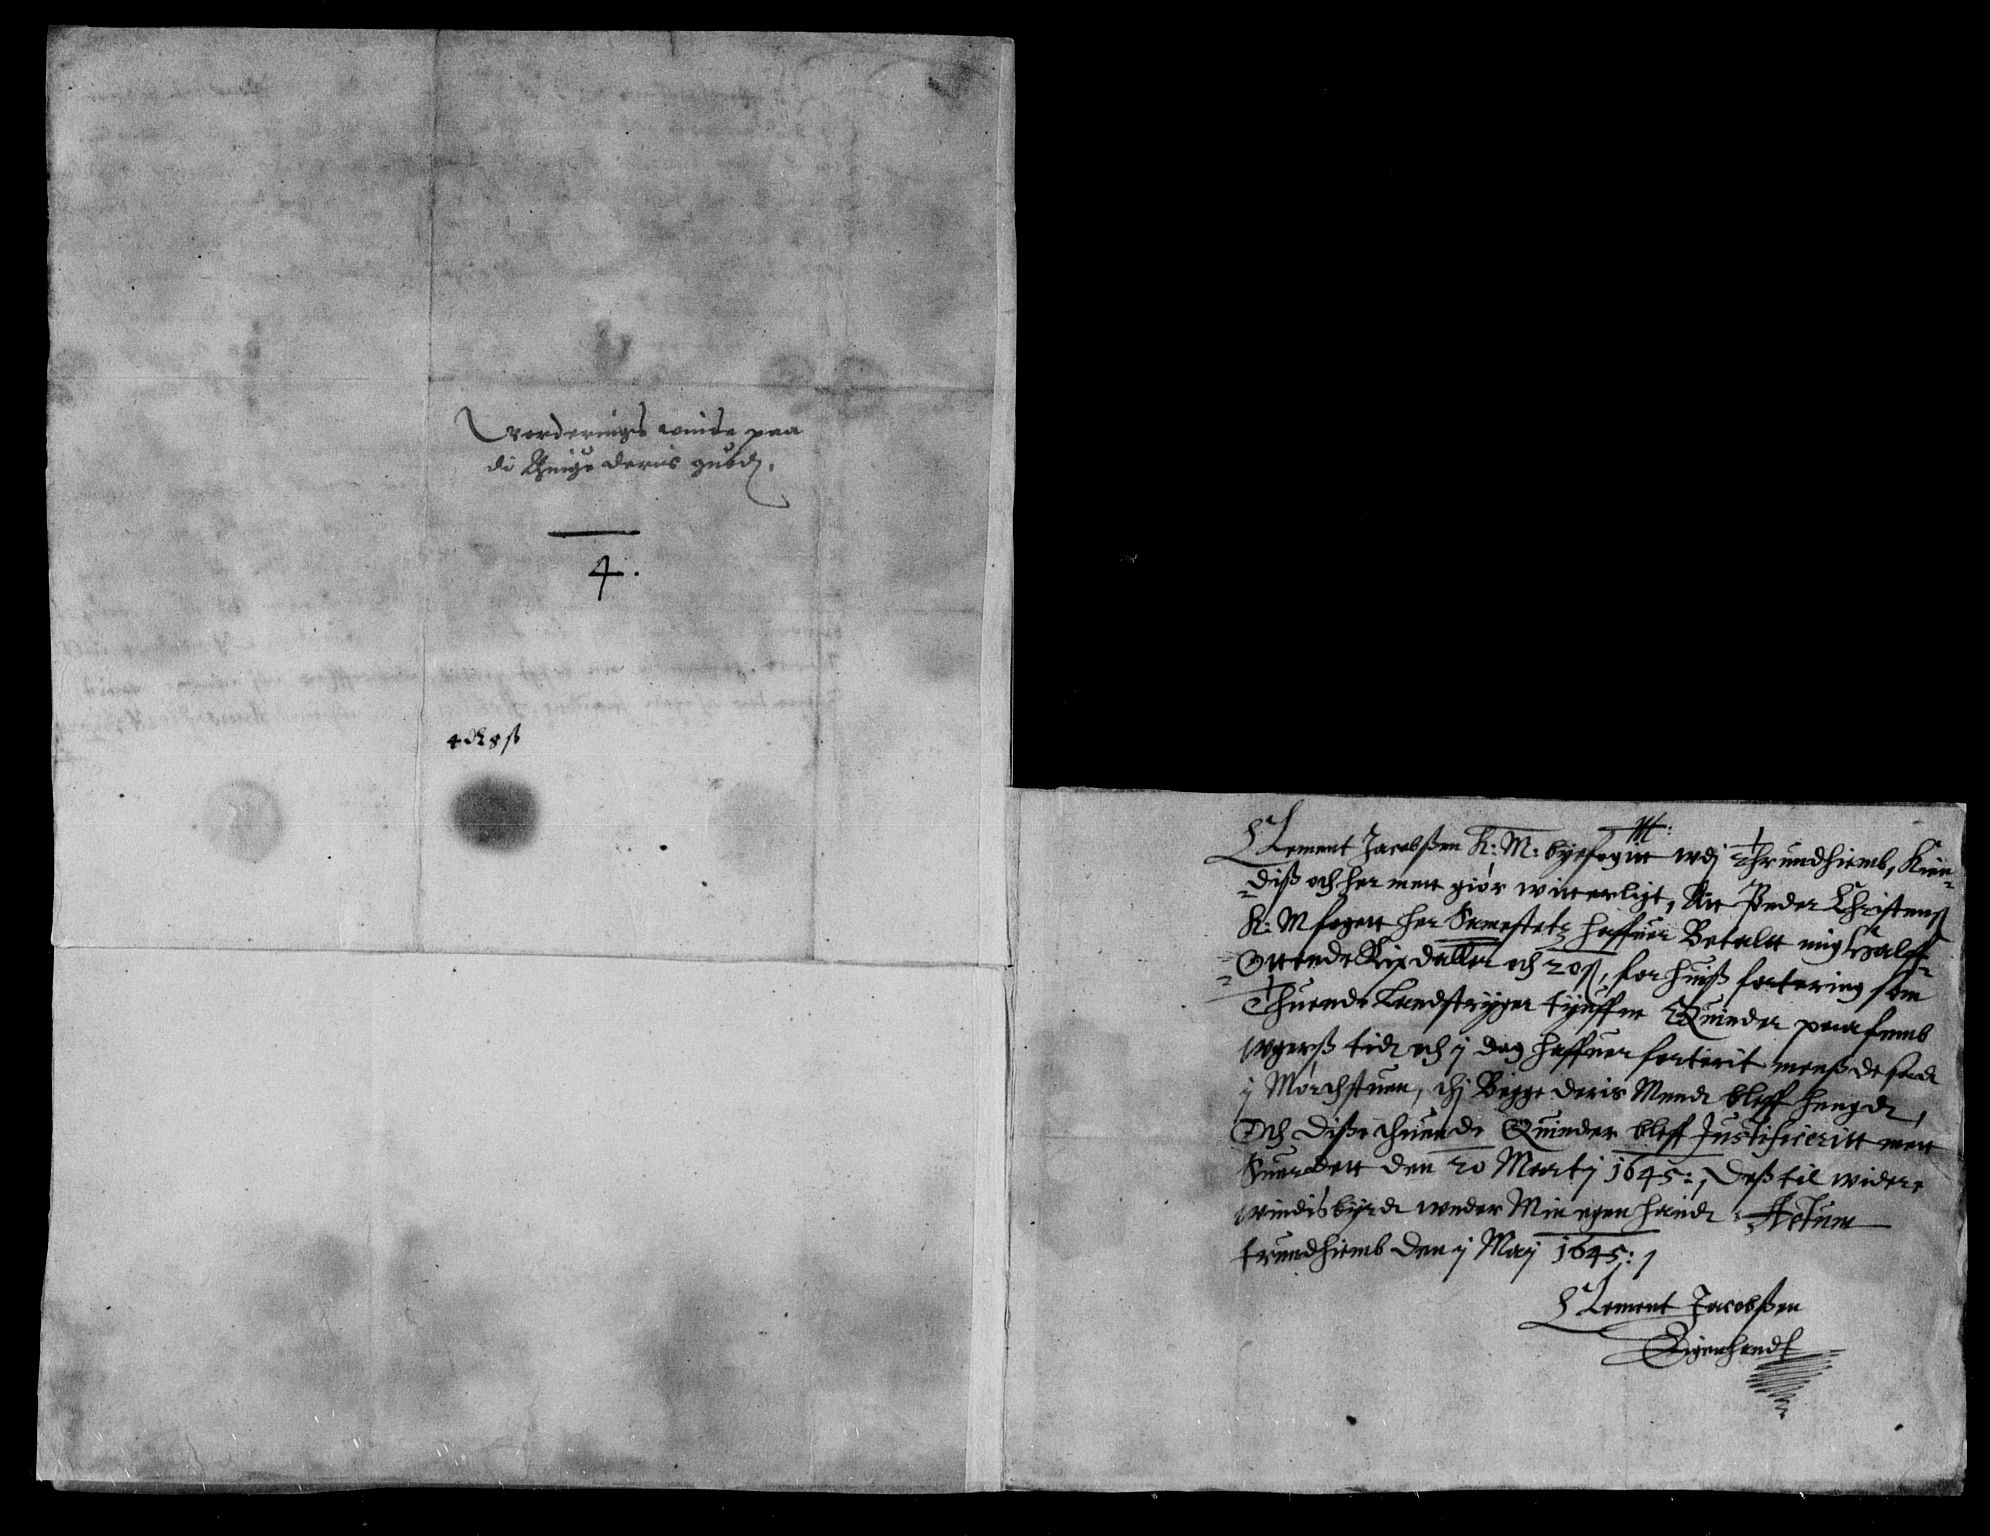 Worderings winde paa
di Thuige deris guods.
4.
4 dr 8 ß
Clement Jacobßen K: M: byefogitt wdj Thrundhiemb, Kien-
diß och her mett giør witterligt, Att Peder Christenß
K: M fogett her Samestetz haffuer Betaltt mig Halff-
Ottende Rixdaller och 20 ß, for huiß fortering som
Thuende Landstryger tyuffue Quinder paa femb
wgerß tidt och j dag haffuer forterit menß de sadt
j Mørchstuen, thj Begge deris Mendt bleff hengdt,
Och diße thuende Quinder bleff Justificeritt mett
Suerdett den 20 Martj 1645: Deß til widere
windisbyrdt wnder Min egen handt. Actum
trundhiemb den j Maj 1645:
Clement Jacobßen
Eigenhandt